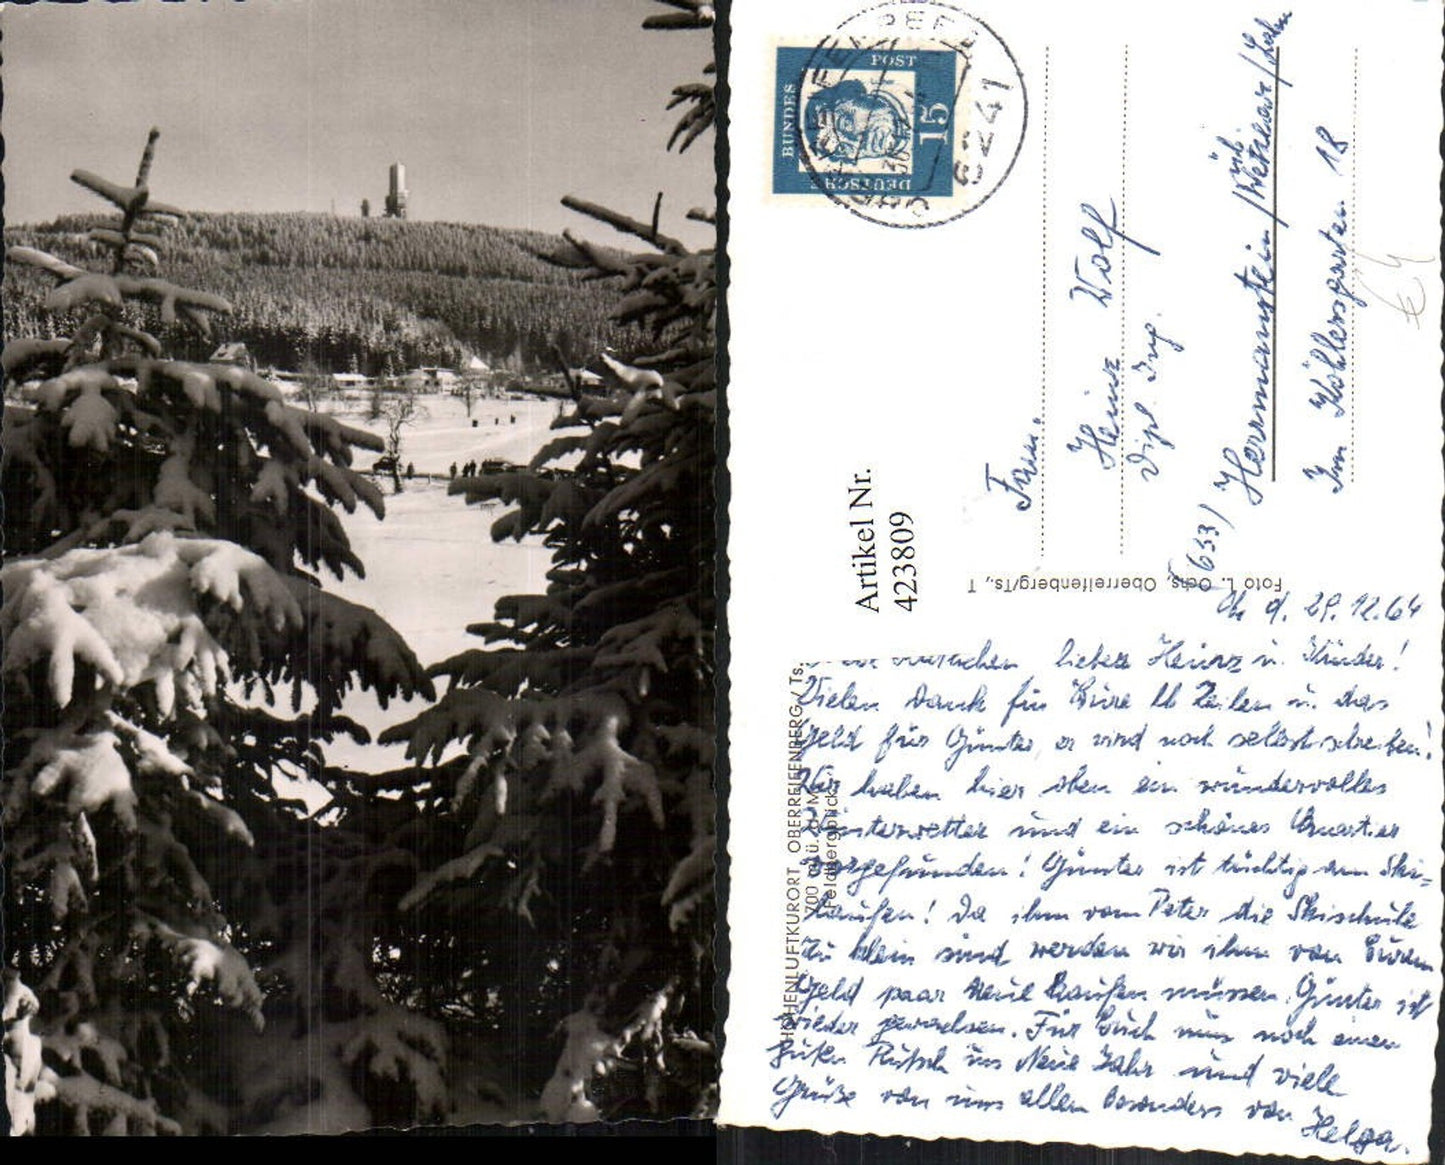 DEUTSCHE
BUNDES
POST
15
6241
Artikel Nr.
423809
Fam.
Heinz Wolf
Dipl. Ing.
(633) Hermannstein/Wetzlar/Lahn
üb.
Im Köhlersgarten 18
Foto L. Ochs, Oberreifenberg/Ts., T
HÖHENLUFTKURORT OBERREIFENBERG/Ts.
700 m ü. d. M.
Feldbergblick
d. 29.12.64
lieber Heinz u. Kinder!
Vielen Dank für Eure lb Zeilen u. das
Geld für Günter, er wird noch selbst schreiben!
Wir haben hier oben ein wundervolles
Winterwetter und ein schönes Quartier
vorgefunden! Günter ist tüchtig am Ski-
laufen! Da ihm vom Peter die Skischuhe
zu klein sind werden wir ihm von Eurem
Geld paar neue kaufen müssen. Günter ist
wieder gewachsen. Für Euch nun noch einen
guten Rutsch ins Neue Jahr und viele
Grüße von uns allen besonders von
Helga.